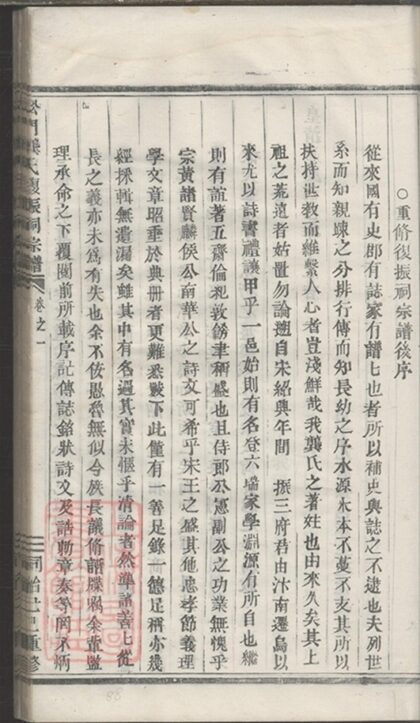 ○重修復振祠宗譜後序
從來國有史郡有誌家有譜七也者所以補史與誌之不逮也夫列世
系而知親踈之分排行傳而知長幼之序水源木本不蔓不支其所以
扶持世教而維繫人心者豈淺鮮哉我龔氏之著姓也由來久矣其上
祖之荒遠者姑置勿論遡自宋紹興年間 撰三府君由汴南遷烏以
來尤以詩書禮讓甲乎一邑始則有名登六
家學淵源有所自也繼
則有誼著五齋倫
稱盛也且侍郎公憲副公之功業無愧乎
宗黃諸賢麟侯公南華公之詩文可希乎宋王之盛其他忠孝節義理
學文章昭垂於典冊者更難悉數下此僅有一善足錄一德足稱亦幾
經採輯無遺漏矣雖其中有名過其實未愜乎清論者然準諸善七從
長之義亦未為有失也余不佞愚魯無似今族長議脩譜牒
余董
理承命之下覆閱前所載序記傳誌銘狀詩文及誥勅章奏等罔不炳
氏復振祠宗譜
卷之一
同治
重修